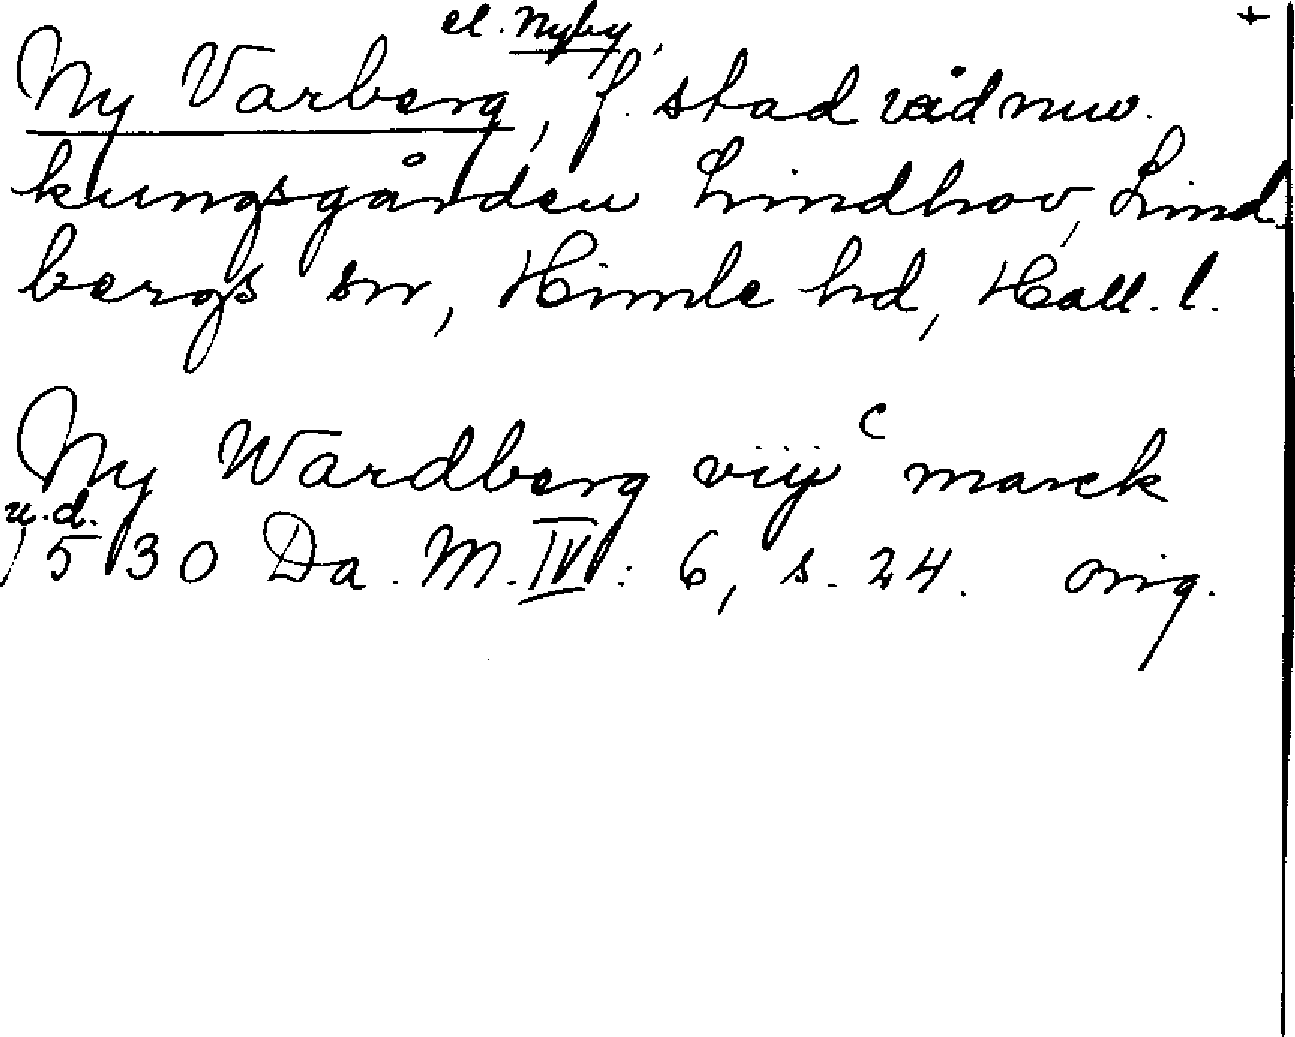 el. Nyby,
Ny Varberg, f. stad vid nuv.
kungsgården Lindhov, Lind-
bergs sn, Himle hd, Hall. l.
Ny Wardberg viij c marck
u.d.
1530 Da. M. IV: 6, s. 24. orig.